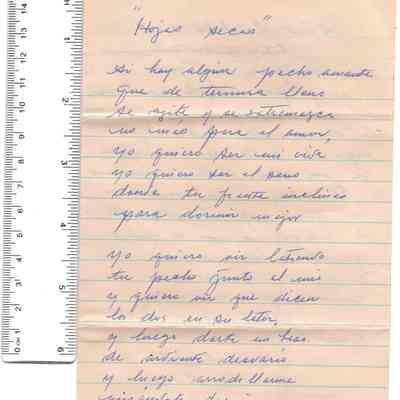 "Hojas secas"
si hay algún pecho amante
que de ternura lleno
se agite y se estremezca
no mas para el amor,
yo quiero ser mi vida
yo quiero ser el seno
donde tu frente inclines
para dormir mejor
yo quiero oir latiendo
tu pecho junto al mio
y quiero oir que dicen
los dos en su latir,
y luego darte un beso
de ardiente desvario
y luego arrodillarme